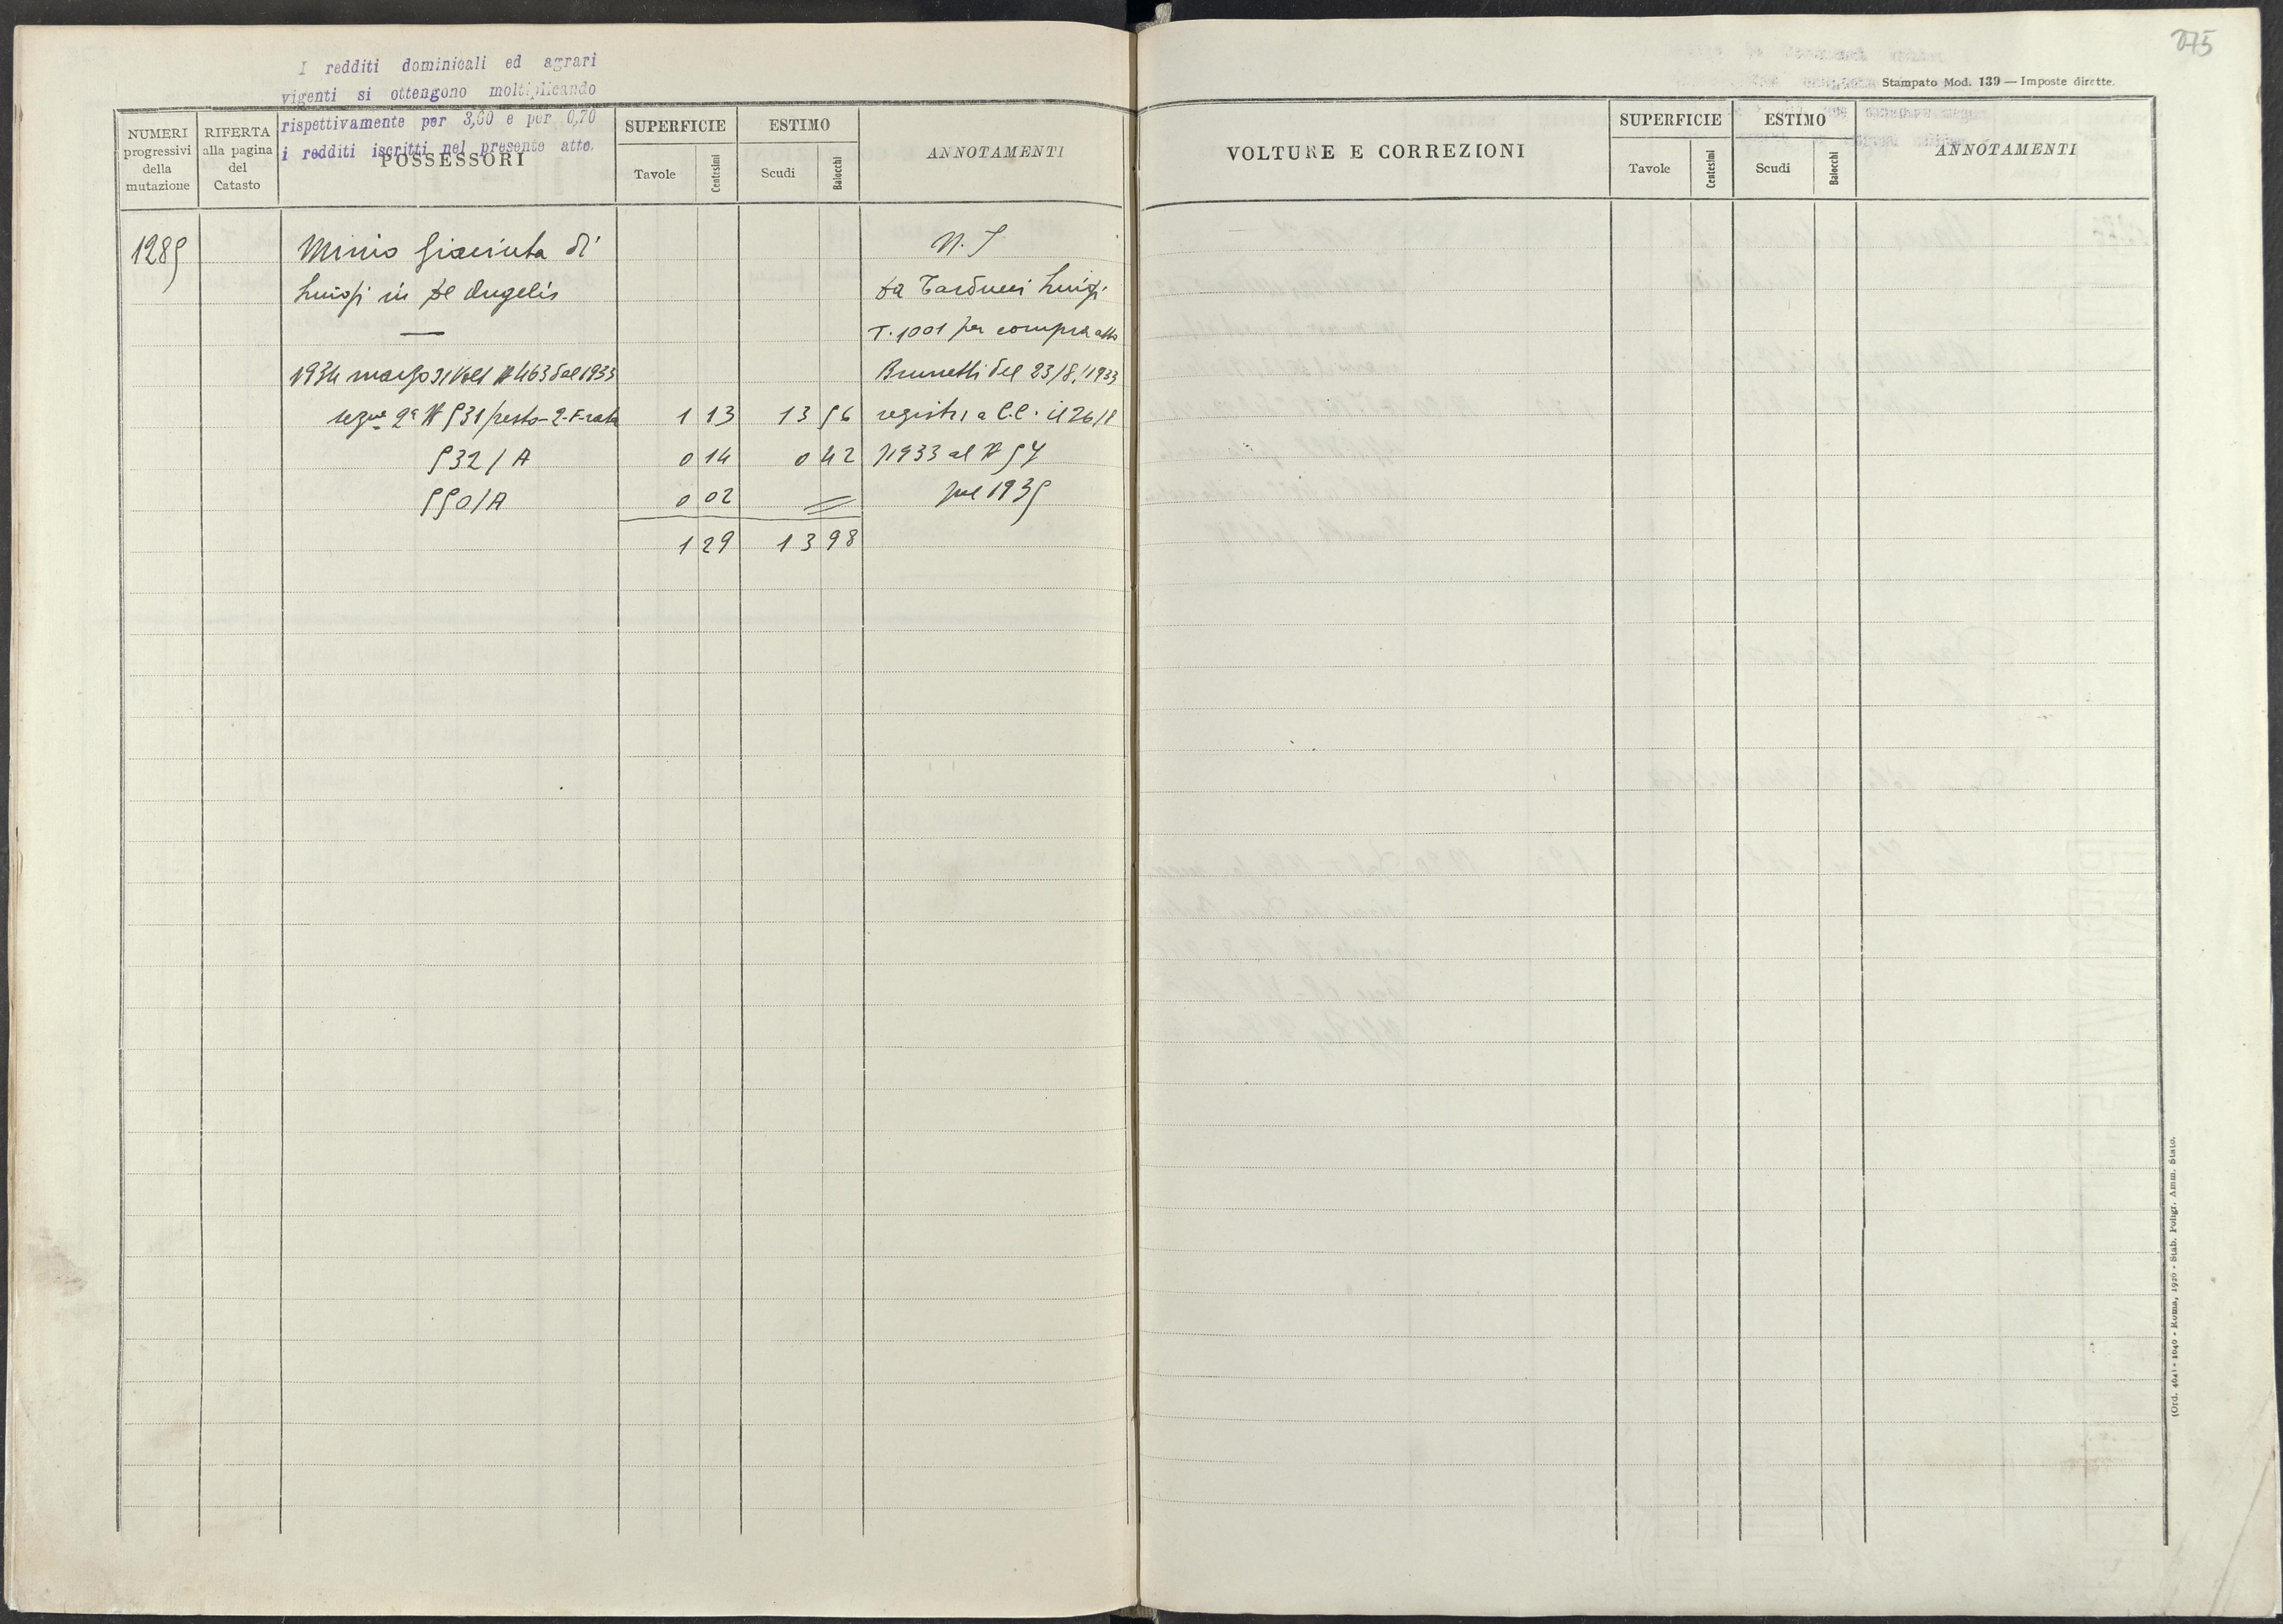 I redditi dominicali ed agrari
vigenti si ottengono moltiplicando
rispettivamente per 3,60 e per 0,70
i redditi iscritti nel presente atto.
NUMERI progressivi della mutazione
RIFERTA alla pagina del Catasto
POSSESSORI
SUPERFICIE
Tavole
Centesimi
ESTIMO
Scudi
Baiocchi
ANNOTAMENTI
1285
Minio Giacinta di
Luigi in De Angelis
1934 marzo 31 Vol 1 N 463 del 1933
segue 2ª N 531/resto-2-F-rata 1 13 13 56
532/A 0 14 0 42
550/A 0 02
1 29 13 98
N. T.
da Tarducci Luigi
T. 1001 per compra atto
Brunetti del 23/8/1933
registr. a C.C. il 26/8
/1933 al N 57
pel 1935
275
Stampato Mod. 139 — Imposte dirette.
VOLTURE E CORREZIONI
SUPERFICIE
Tavole
Centesimi
ESTIMO
Scudi
Baiocchi
ANNOTAMENTI
(Ord. 4041 - 1040 - Roma, 1920 - Stab. Poligr. Amm. Stato.